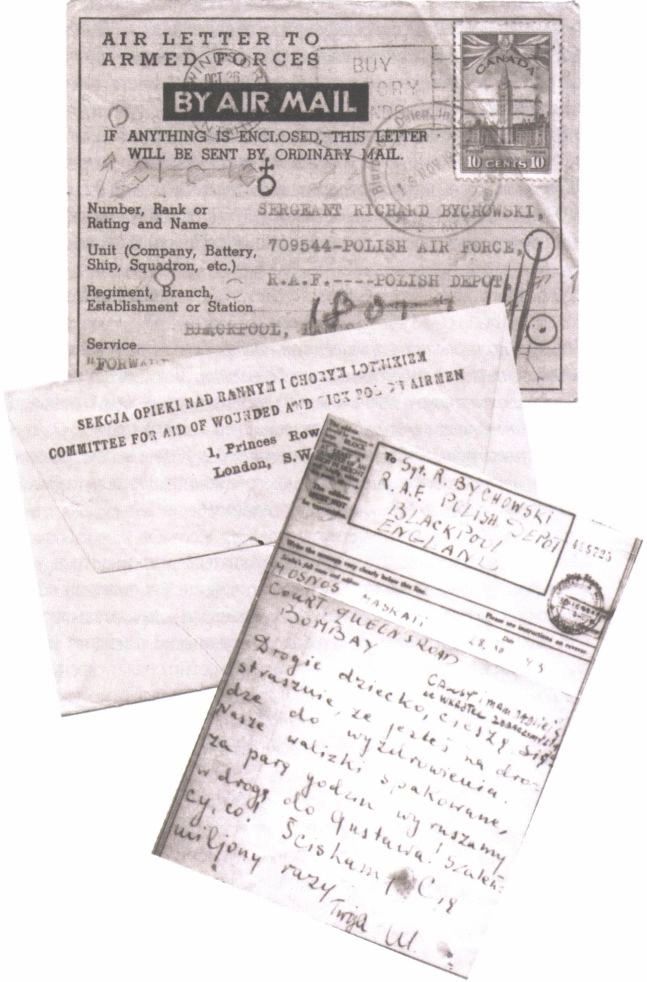 AIR LETTER TO
ARMED FORCES
OCT 26
BUY
BY AIR MAIL
CANADA
10 CENTS 10
IF ANYTHING IS ENCLOSED, THIS LETTER
WILL BE SENT BY ORDINARY MAIL.
Number, Rank or
Rating and Name
SERGEANT RICHARD BYCHOWSKI,
Unit (Company, Battery,
Ship, Squadron, etc.)
709544-POLISH AIR FORCE,
Regiment, Branch,
Establishment or Station
R.A.F.----POLISH DEPOT,
BLACKPOOL,
Service
"FORWARD
SEKCJA OPIEKI NAD RANNYM I CHORYM LOTNIKIEM
COMMITTEE FOR AID OF WOUNDED AND SICK POLISH AIRMEN
1, Princes Row
London, S.W
To Sgt. R. BYCHOWSKI
R.A.F. POLISH DEPOT
BLACKPOOL
ENGLAND
Write the message very clearly below this line.
Please see instructions on reverse.
Date
MOSNOS MASKATI
COURT QUEENSROAD
BOMBAY
Drogie dziecko, cieszę się
strasznie, że jesteś na dro-
dze do wyzdrowienia.
Nasze walizki spakowane,
za parę godzin wyruszamy
w drogę do Gustawa! Szaleń-
cy, co! Ściskamy Cię
miljony razy
Twoja M.